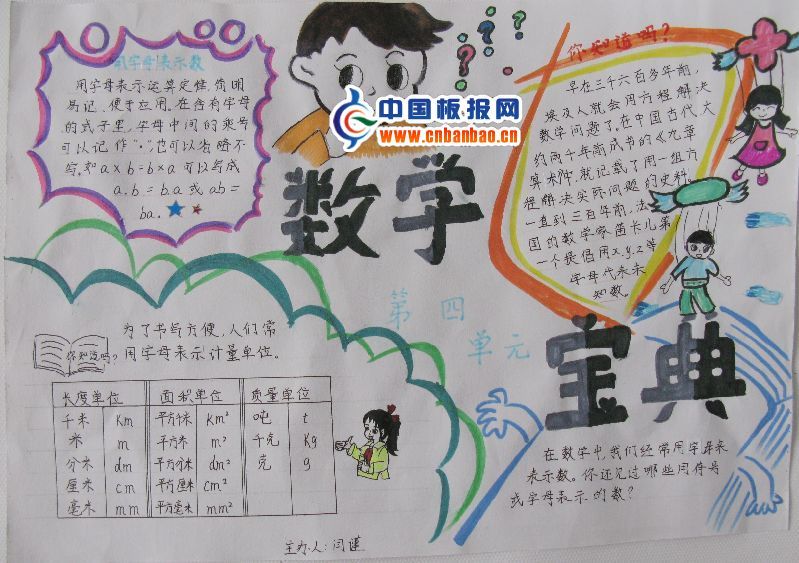 用字母表示数
用字母表示运算定律,简明
易记,便于应用。在含有字母
的式子里,字母中间的乘号
可以记作“·”,也可以省略不
写。如a×b=b×a 可以写成
a.b=b.a 或 ab=
ba.
中国板报网
www.cnbanbao.cn
你知道吗?
早在三千六百多年前,
埃及人就会用方程解决
数学问题了。在中国古代,大
约两千年前成书的《九章
算术》中,就记载了用一组方
程解决实际问题的史料。
一直到三百年前,法
国的数学家笛卡儿第
一个提倡用x.y.z等
字母代表未
知数。
数学
第四
单元
宝典
为了书写方便,人们常
用字母表示计量单位。
你知道吗?
长度单位 面积单位 质量单位
千米 Km 平方千米 Km² 吨 t
米 m 平方米 m² 千克 Kg
分米 dm 平方分米 dm² 克 g
厘米 cm 平方厘米 cm²
毫米 mm 平方毫米 mm²
在数学中,我们经常用字母来
表示数。你还见过哪些用符号
或字母表示的数?
主办人:闫谨